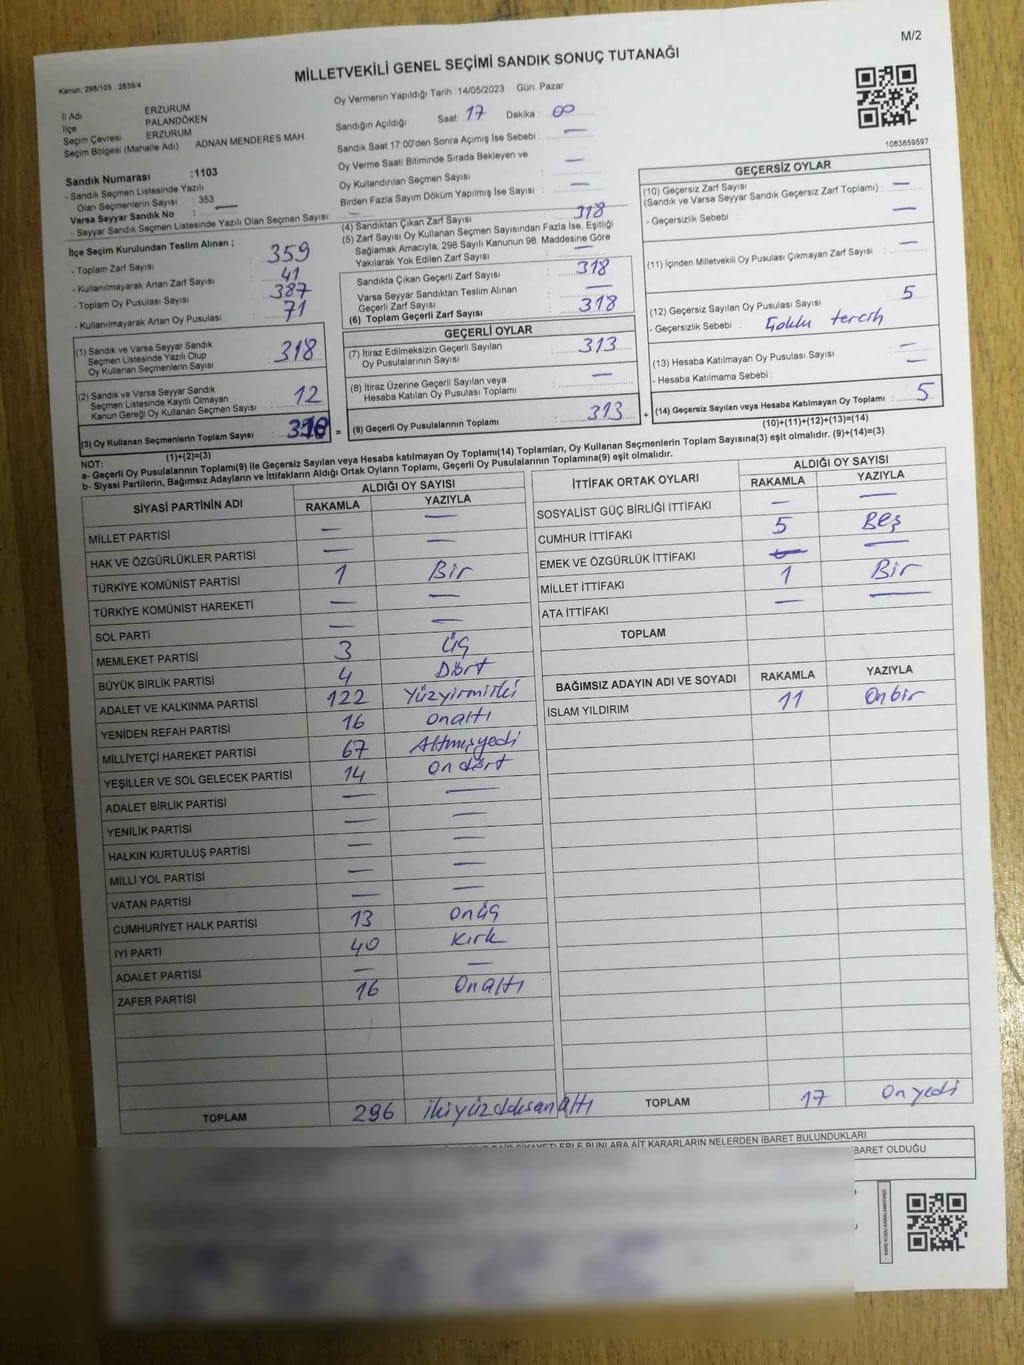 M/2
MİLLETVEKİLİ GENEL SEÇİMİ SANDIK SONUÇ TUTANAĞI
Kanun: 298/105 , 2839/4
İl Adı ERZURUM
İlçe PALANDÖKEN
Seçim Çevresi ERZURUM
Seçim Bölgesi (Mahalle Adı) ADNAN MENDERES MAH
Sandık Numarası :1103
- Sandık Seçmen Listesinde Yazılı
Olan Seçmenlerin Sayısı : 353
Varsa Seyyar Sandık No : —
- Seyyar Sandık Seçmen Listesinde Yazılı Olan Seçmen Sayısı : —
Oy Vermenin Yapıldığı Tarih :14/05/2023 Gün: Pazar
Sandığın Açıldığı Saat : 17 Dakika : 00
Sandık Saat 17:00'den Sonra Açımış İse Sebebi : —
Oy Verme Saati Bitiminde Sırada Bekleyen ve
Oy Kullandırılan Seçmen Sayısı : —
Birden Fazla Sayım Döküm Yapılmış İse Sayısı : —
1083859597
İlçe Seçim Kurulundan Teslim Alınan ;
- Toplam Zarf Sayısı : 359
- Kullanılmayarak Artan Zarf Sayısı : 41
- Toplam Oy Pusulası Sayısı : 387
- Kullanılmayarak Artan Oy Pusulası : 71
(1) Sandık ve Varsa Seyyar Sandık
Seçmen Listesinde Yazılı Olup
Oy Kullanan Seçmenlerin Sayısı : 318
(2) Sandık ve Varsa Seyyar Sandık
Seçmen Listesinde Kayıtlı Olmayan
Kanun Gereği Oy Kullanan Seçmen Sayısı : 12
(3) Oy Kullanan Seçmenlerin Toplam Sayısı : 318
(1)+(2)=(3)
(4) Sandıktan Çıkan Zarf Sayısı : 318
(5) Zarf Sayısı Oy Kullanan Seçmen Sayısından Fazla İse, Eşitliği
Sağlamak Amacıyla, 298 Sayılı Kanunun 98. Maddesine Göre
Yakılarak Yok Edilen Zarf Sayısı : —
Sandıkta Çıkan Geçerli Zarf Sayısı : 318
Varsa Seyyar Sandıktan Teslim Alınan
Geçerli Zarf Sayısı : —
(6) Toplam Geçerli Zarf Sayısı : 318
GEÇERLİ OYLAR
(7) İtiraz Edilmeksizin Geçerli Sayılan
Oy Pusulalarının Sayısı : 313
(8) İtiraz Üzerine Geçerli Sayılan veya
Hesaba Katılan Oy Pusulası Toplamı : —
= (9) Geçerli Oy Pusulalarının Toplamı : 313
GEÇERSİZ OYLAR
(10) Geçersiz Zarf Sayısı
(Sandık ve Varsa Seyyar Sandık Geçersiz Zarf Toplamı) : —
- Geçersizlik Sebebi : —
(11) İçinden Milletvekili Oy Pusulası Çıkmayan Zarf Sayısı : —
(12) Geçersiz Sayılan Oy Pusulası Sayısı : 5
- Geçersizlik Sebebi : Çoklu tercih
(13) Hesaba Katılmayan Oy Pusulası Sayısı : —
- Hesaba Katılmama Sebebi : —
+ (14) Geçersiz Sayılan veya Hesaba Katılmayan Oy Toplamı : 5
(10)+(11)+(12)+(13)=(14)
NOT:
a- Geçerli Oy Pusulalarının Toplamı(9) ile Geçersiz Sayılan veya Hesaba katılmayan Oy Toplamı(14) Toplamları, Oy Kullanan Seçmenlerin Toplam Sayısına(3) eşit olmalıdır. (9)+(14)=(3)
b- Siyasi Partilerin, Bağımsız Adayların ve İttifakların Aldığı Ortak Oyların Toplamı, Geçerli Oy Pusulalarının Toplamına(9) eşit olmalıdır.
SİYASİ PARTİNİN ADI ALDIĞI OY SAYISI
RAKAMLA YAZIYLA
MİLLET PARTİSİ — —
HAK VE ÖZGÜRLÜKLER PARTİSİ — —
TÜRKİYE KOMÜNİST PARTİSİ 1 Bir
TÜRKİYE KOMÜNİST HAREKETİ — —
SOL PARTİ — —
MEMLEKET PARTİSİ 3 Üç
BÜYÜK BİRLİK PARTİSİ 4 Dört
ADALET VE KALKINMA PARTİSİ 122 Yüzyirmiiki
YENİDEN REFAH PARTİSİ 16 onaltı
MİLLİYETÇİ HAREKET PARTİSİ 67 Altmışyedi
YEŞİLLER VE SOL GELECEK PARTİSİ 14 on dört
ADALET BİRLİK PARTİSİ — —
YENİLİK PARTİSİ — —
HALKIN KURTULUŞ PARTİSİ — —
MİLLİ YOL PARTİSİ — —
VATAN PARTİSİ — —
CUMHURİYET HALK PARTİSİ 13 onüç
İYİ PARTİ 40 kırk
ADALET PARTİSİ — —
ZAFER PARTİSİ 16 Onaltı
TOPLAM 296 ikiyüzdoksanaltı
İTTİFAK ORTAK OYLARI ALDIĞI OY SAYISI
RAKAMLA YAZIYLA
SOSYALİST GÜÇ BİRLİĞİ İTTİFAKI — —
CUMHUR İTTİFAKI 5 Beş
EMEK VE ÖZGÜRLÜK İTTİFAKI — —
MİLLET İTTİFAKI 1 Bir
ATA İTTİFAKI — —
TOPLAM
BAĞIMSIZ ADAYIN ADI VE SOYADI RAKAMLA YAZIYLA
İSLAM YILDIRIM 11 Onbir
TOPLAM 17 On yedi
ŞİKAYETLERLE BUNLARA AİT KARARLARIN NELERDEN İBARET BULUNDUKLARI
BARET OLDUĞU